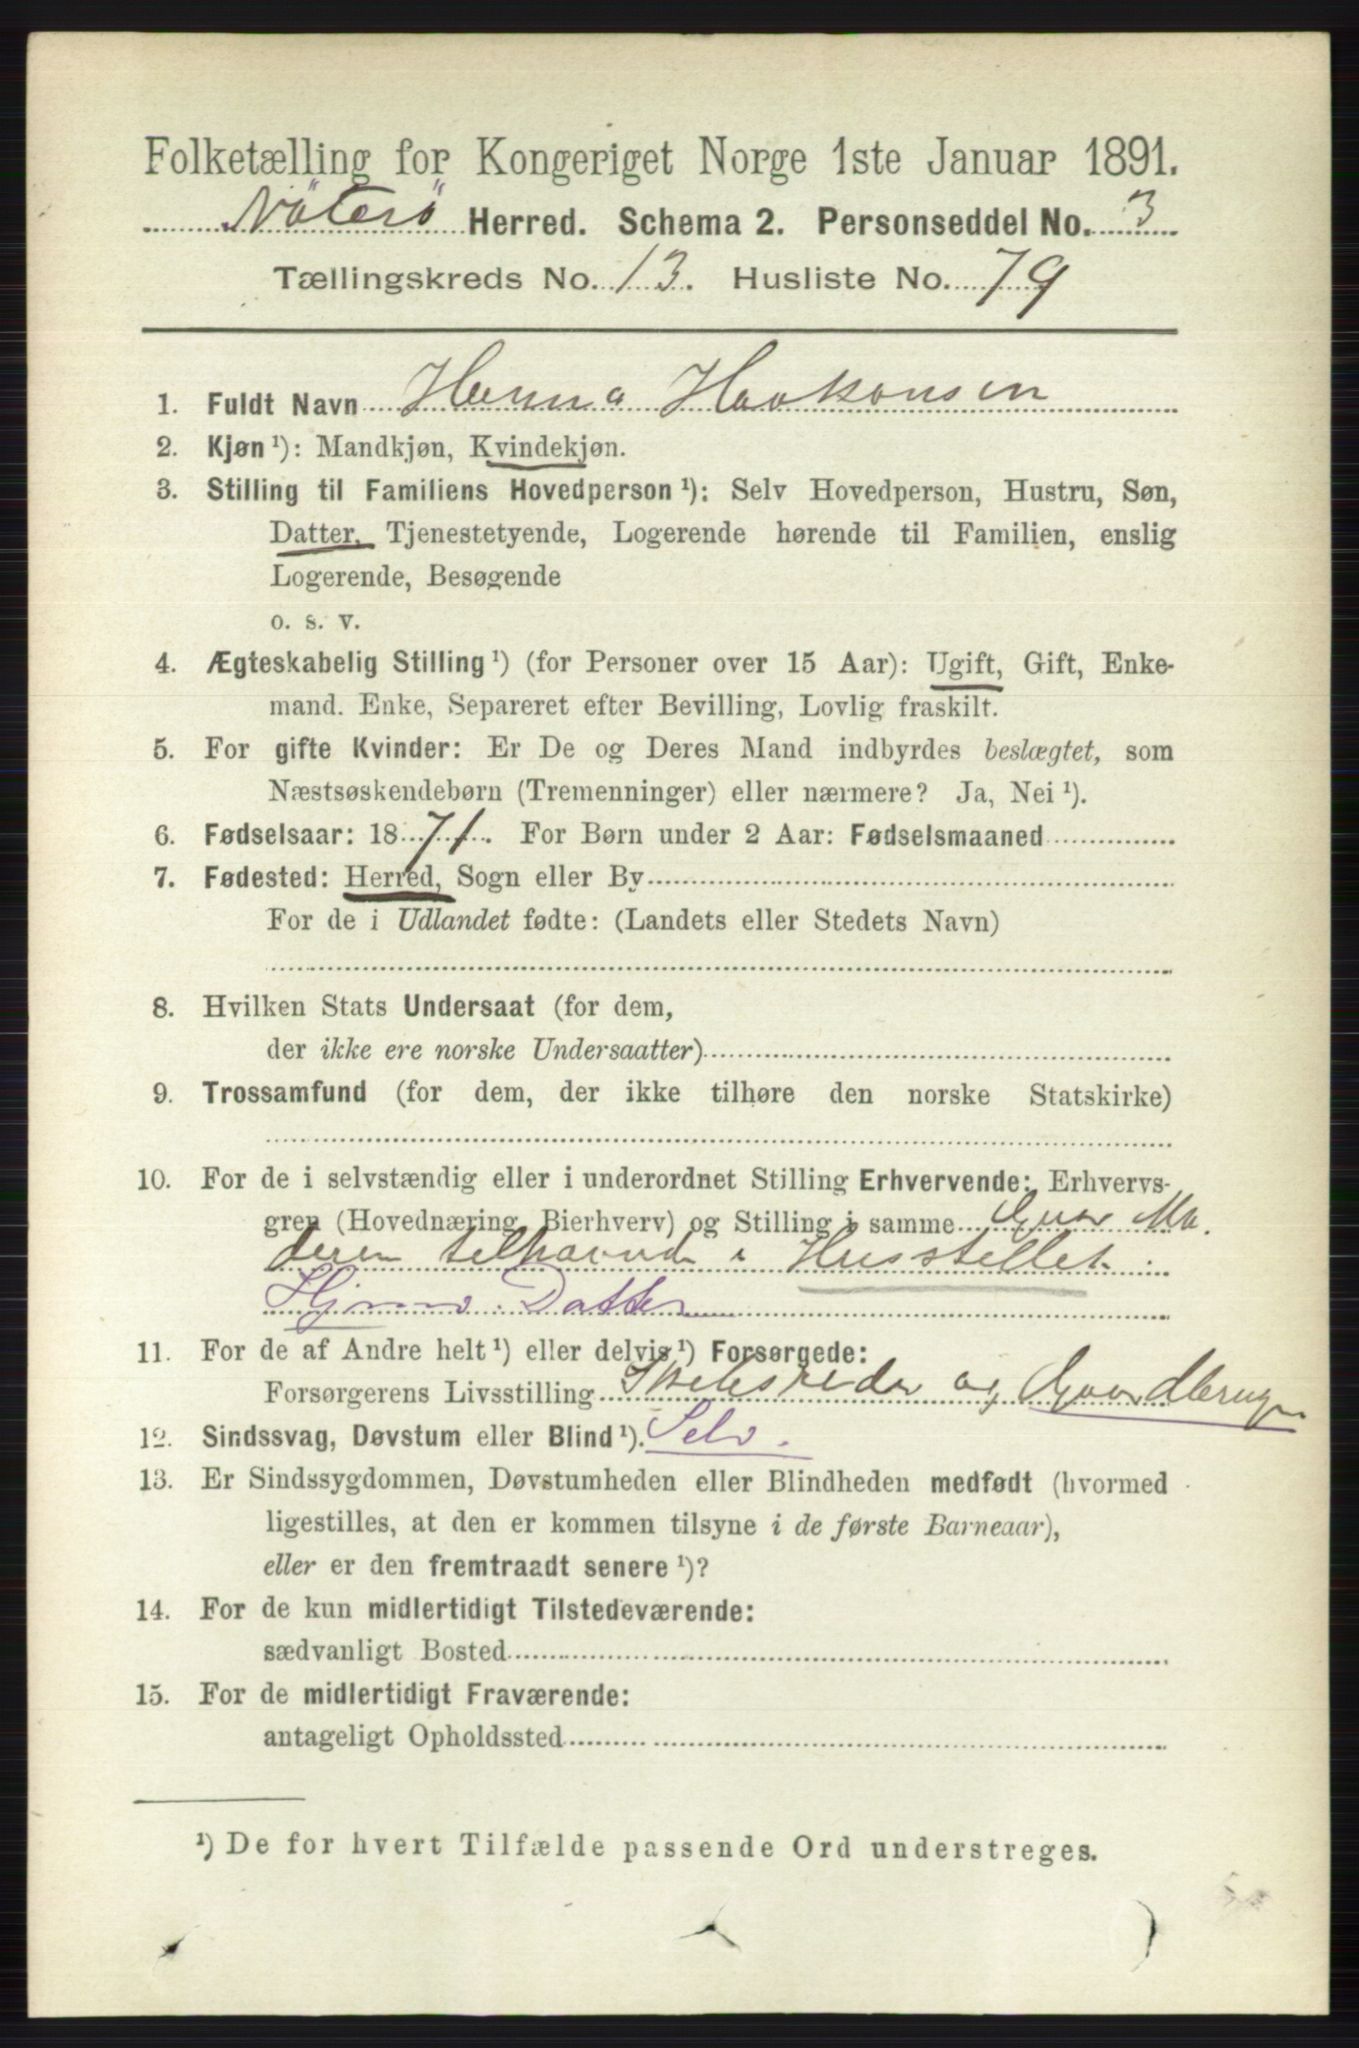 Folketælling for Kongeriget Norge 1ste Januar 1891.
Nöterö Herred. Schema 2. Personseddel No. 3
Tællingskreds No. 13. Husliste No. 79
1. Fuldt Navn Hanna Haakonsen
2. Kjøn ¹): Mandkjøn, Kvindekjøn.
3. Stilling til Familiens Hovedperson ¹): Selv Hovedperson, Hustru, Søn,
Datter, Tjenestetyende, Logerende hørende til Familien, enslig
Logerende, Besøgende
o. s. v.
4. Ægteskabelig Stilling ¹) (for Personer over 15 Aar): Ugift, Gift, Enke-
mand. Enke, Separeret efter Bevilling, Lovlig fraskilt.
5. For gifte Kvinder: Er De og Deres Mand indbyrdes beslægtet, som
Næstsøskendebørn (Tremenninger) eller nærmere? Ja, Nei ¹).
6. Fødselsaar: 1871. For Børn under 2 Aar: Fødselsmaaned
7. Fødested: Herred, Sogn eller By
For de i Udlandet fødte: (Landets eller Stedets Navn)
8. Hvilken Stats Undersaat (for dem,
der ikke ere norske Undersaatter)
9. Trossamfund (for dem, der ikke tilhøre den norske Statskirke)
10. For de i selvstændig eller i underordnet Stilling Erhvervende: Erhvervs-
gren (Hovednæring, Bierhverv) og Stilling i samme Gaar Mo.
deren tilhaande i Husstellet.
Hjemmev. Datter
11. For de af Andre helt ¹) eller delvis ¹) Forsørgede:
Forsørgerens Livsstilling Skibsreder og Gaardbruger
12. Sindssvag, Døvstum eller Blind ¹). Selv.
13. Er Sindssygdommen, Døvstumheden eller Blindheden medfødt (hvormed
ligestilles, at den er kommen tilsyne i de første Barneaar),
eller er den fremtraadt senere ¹)?
14. For de kun midlertidigt Tilstedeværende:
sædvanligt Bosted
15. For de midlertidigt Fraværende:
antageligt Opholdssted
¹) De for hvert Tilfælde passende Ord understreges.